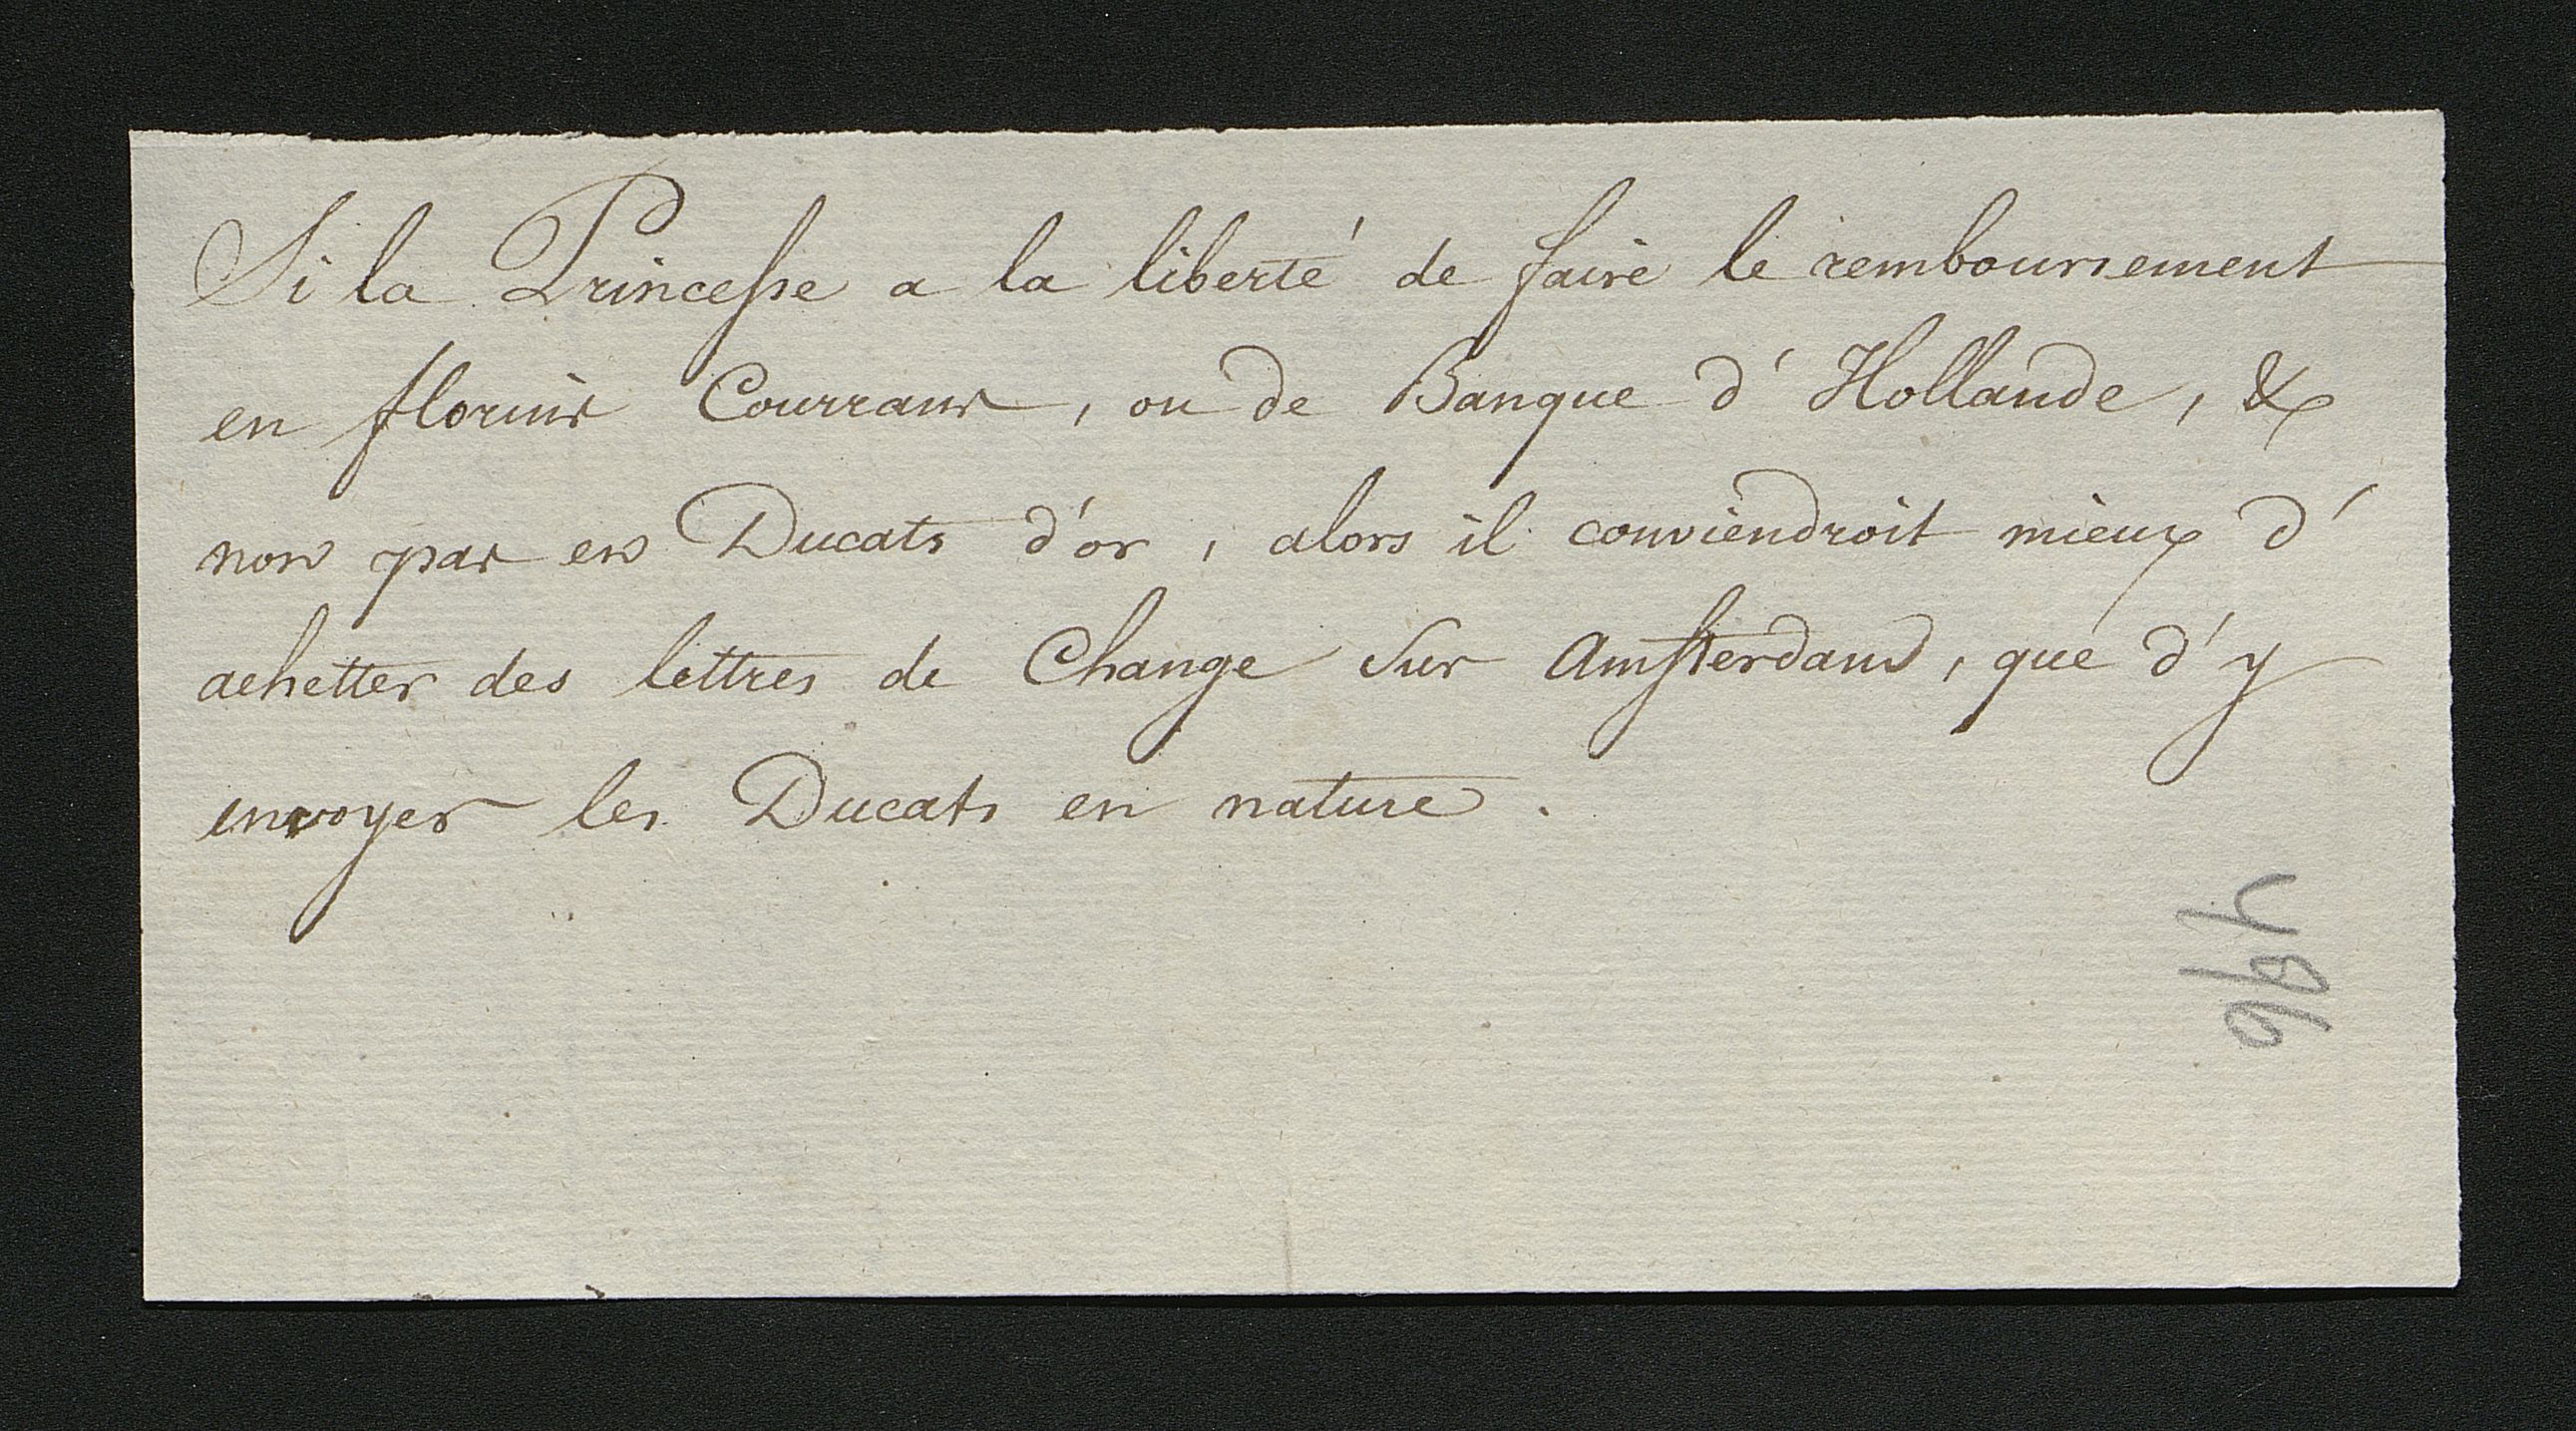 Si la Princesse a la liberté de faire le remboursement
en florins Courrans, ou de Banque d'Hollande, &
non pas en Ducats d'or, alors il conviendroit mieux d'
achetter des lettres de Change sur Amsterdam, que d'y
envoyer les Ducats en nature.
496